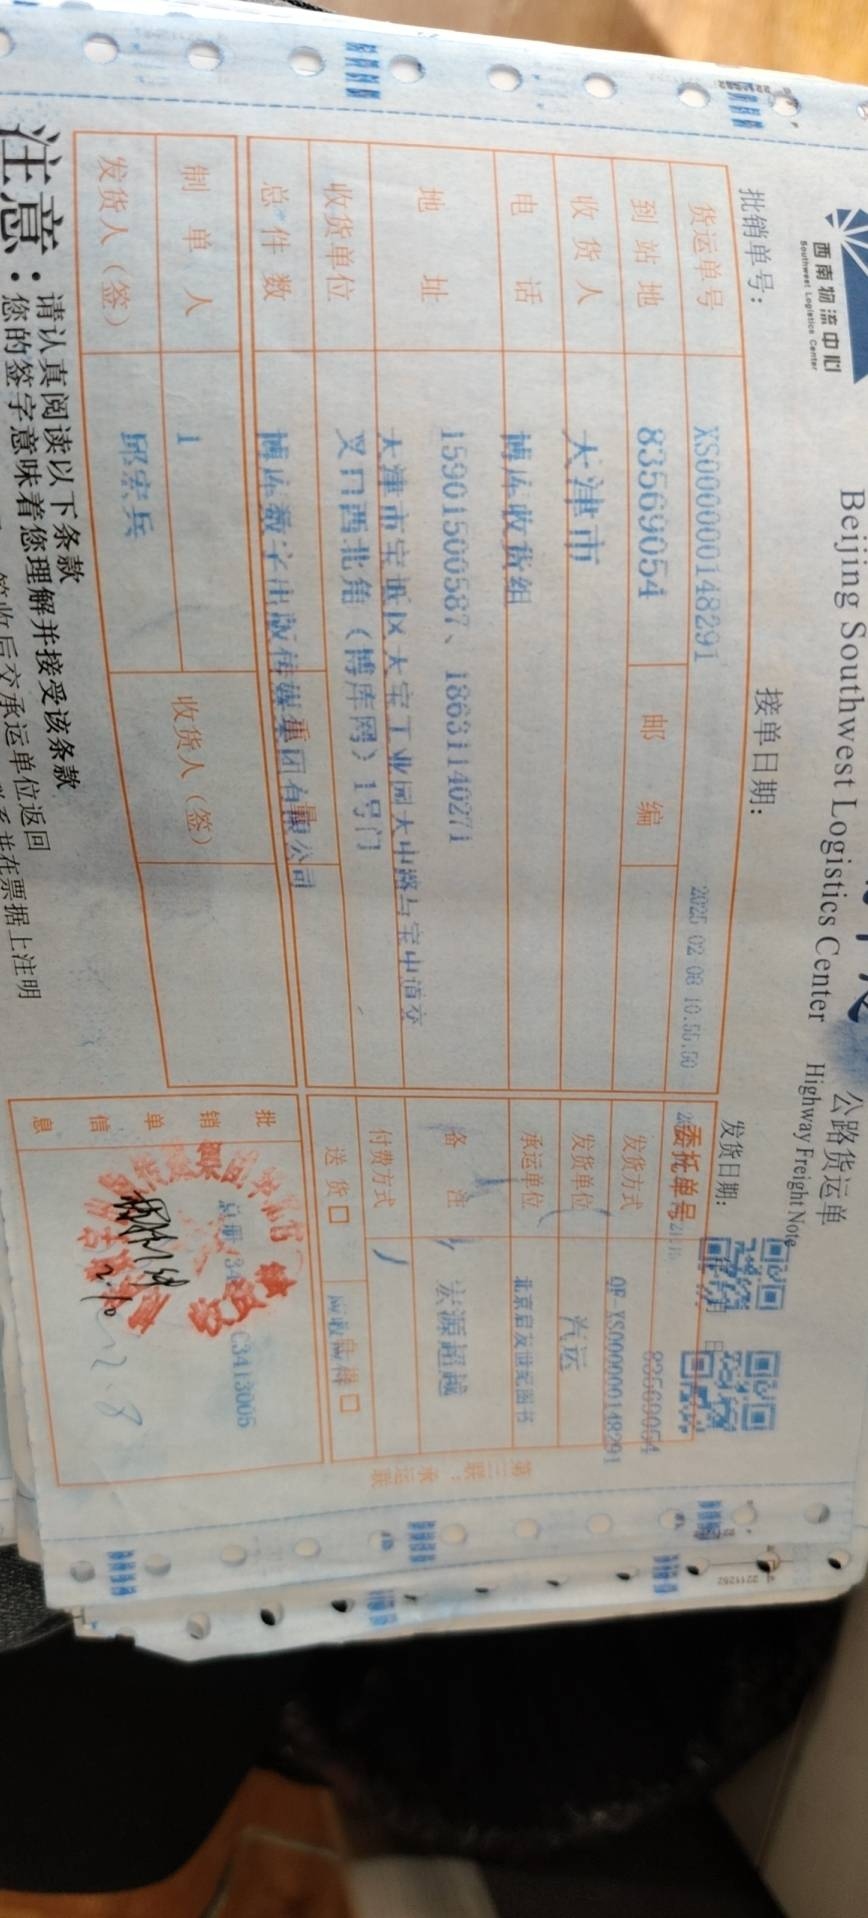 西南物流中心
Southwest Logistics Center
Beijing Southwest Logistics Center
公路货运单
Highway Freight Note
批销单号：
接单日期：
发货日期：
货运单号
XS000000148291
2025 02 08 10.55.50
委托单号
83569054
到站地
83569054
邮 编
发货方式
QF XS000000148291
收 货 人
天津市
发货单位
汽运
电 话
博库收货组
承运单位
北京启友世纪图书
地 址
15901500587、18631140271
天津市宝坻区天宝工业园大中路与宝中道交
叉口西北角（博库网）1号门
备 注
宏源超越
收货单位
付费方式
总 件 数
博库数字出版传媒集团有限公司
重量
送 货
自 提
制 单 人
1
收货人（签）
发货人（签）
邱宏兵
批销单信息
总册 34
C3413005
2.10
2.8
第三联：承运联
注意：
请认真阅读以下条款
您的签字意味着您理解并接受该条款
签收后交承运单位返回
并在票据上注明